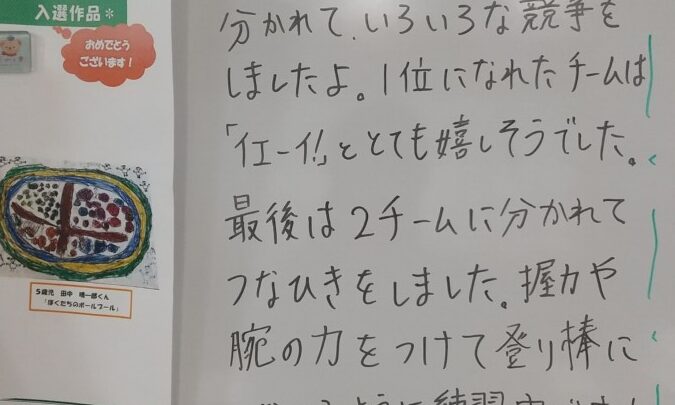 入選作品*
おめでとう
ございます!
5歳児 田中 晴一郎くん
「ぼくたちのボールプール」
分かれて、いろいろな競争を
しましたよ。1位になれたチームは
「イエーイ!」ととても嬉しそうでした。
最後は2チームに分かれて
つなひきをしました。握力や
腕の力をつけて登り棒に